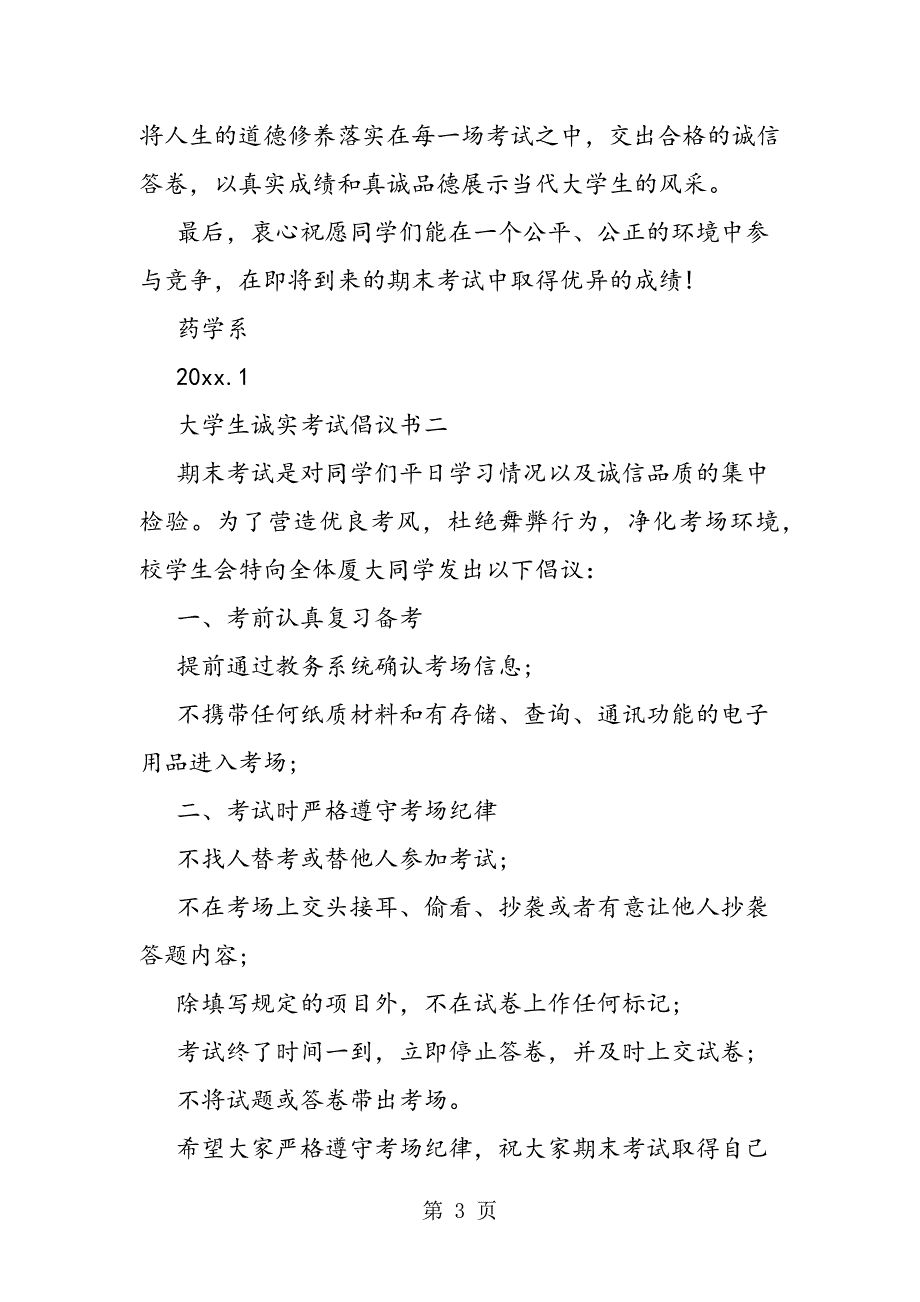 将人生的道德修养落实在每一场考试之中，交出合格的诚信
答卷，以真实成绩和真诚品德展示当代大学生的风采。
最后，衷心祝愿同学们能在一个公平、公正的环境中参
与竞争，在即将到来的期末考试中取得优异的成绩！
药学系
20xx.1
大学生诚实考试倡议书二
期末考试是对同学们平日学习情况以及诚信品质的集中
检验。为了营造优良考风，杜绝舞弊行为，净化考场环境，
校学生会特向全体厦大同学发出以下倡议：
一、考前认真复习备考
提前通过教务系统确认考场信息；
不携带任何纸质材料和有存储、查询、通讯功能的电子
用品进入考场；
二、考试时严格遵守考场纪律
不找人替考或替他人参加考试；
不在考场上交头接耳、偷看、抄袭或者有意让他人抄袭
答题内容；
除填写规定的项目外，不在试卷上作任何标记；
考试终了时间一到，立即停止答卷，并及时上交试卷；
不将试题或答卷带出考场。
希望大家严格遵守考场纪律，祝大家期末考试取得自己
第 3 页